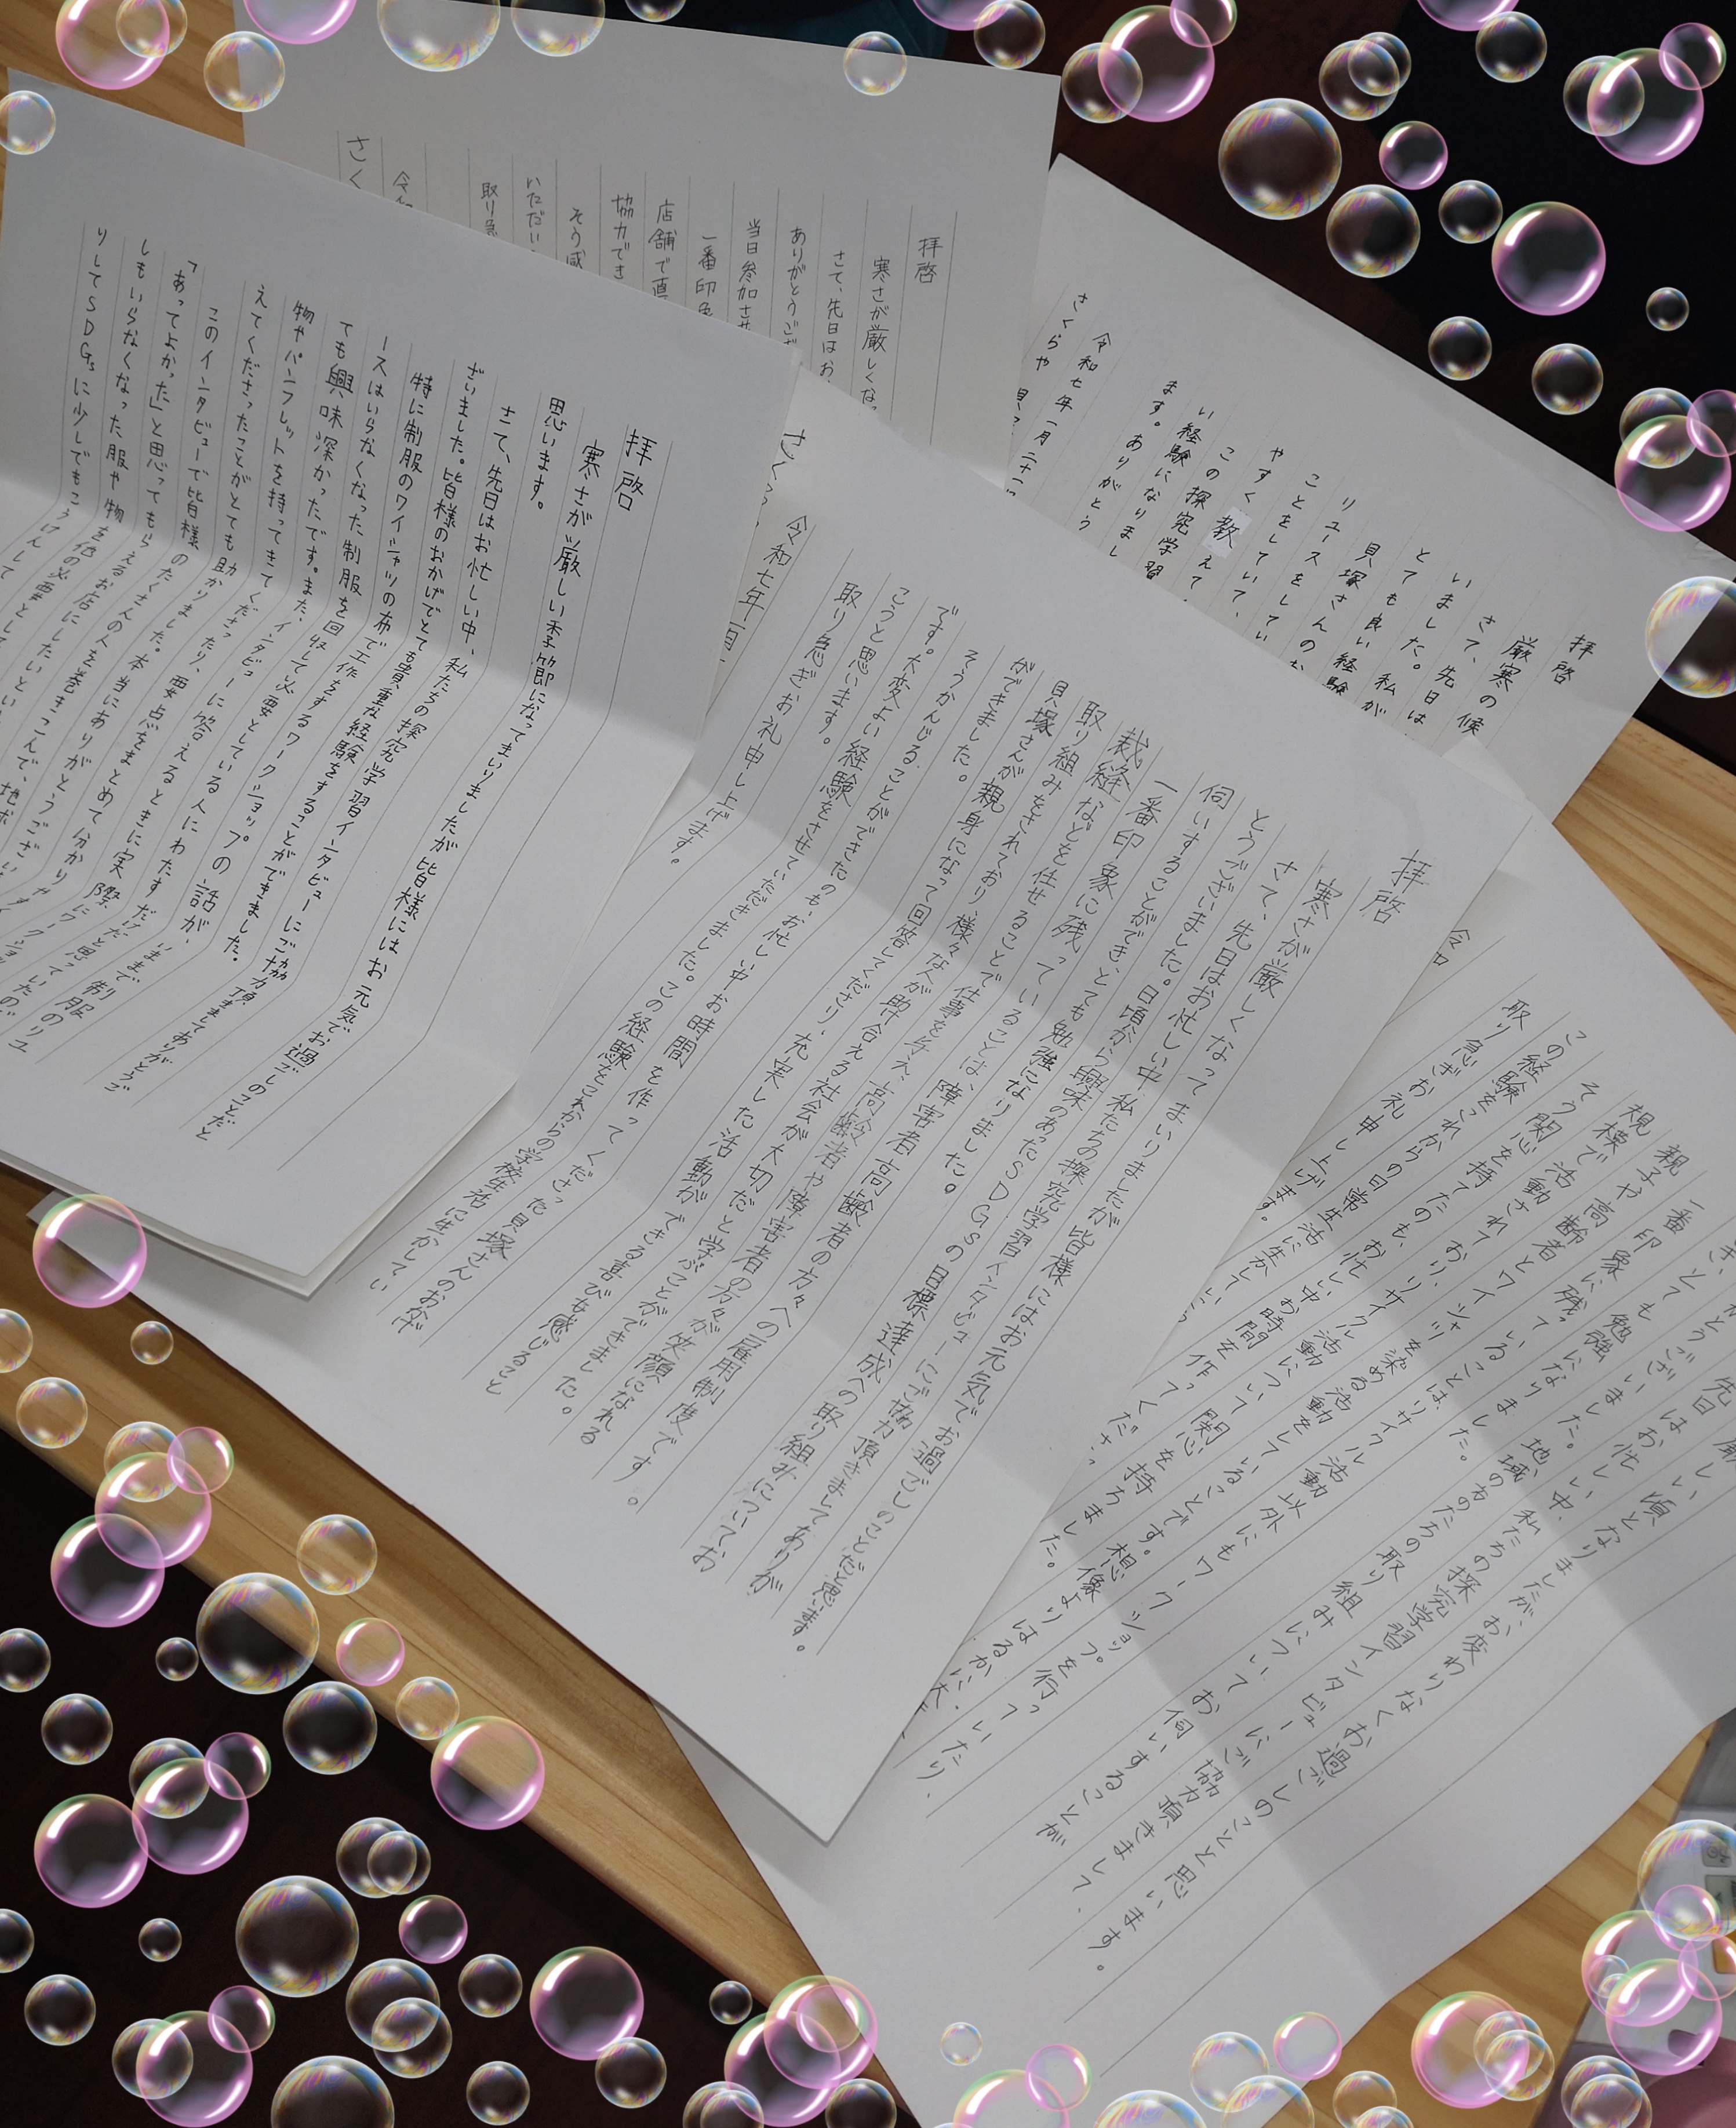 拝啓
寒さが厳しい季節になってまいりましたが皆様にはお元気でお過ごしのことだと
思います。
さて、先日はお忙しい中、私たちの探究学習インタビューにご協力頂きましてありがとうご
ざいました。皆様のおかげでとても貴重な経験をすることができました。
特に制服のワイシャツの布で工作をするワークショップの話が、いままで制服のリユ
ースはいらなくなった制服を回収して必要としている人にわたすだけだと思っていたので
ても興味深かったです。また、インタビューに答えるときに実際にワークショッ
物やパンフレットを持ってきてくださったり、要点をまとめて分かりやす
えてくださったことがとても助かりました。本当にありがとうござい
このインタビューで皆様のたくさんの人を巻きこんで、地球
「あってよかった」と思ってもらえるお店にしたいとい
しもいらなくなった服や物を他の必要として
りしてSDGsに少しでもこうけんして
拝啓
寒さが厳しくなってまいりましたが皆様にはお元気でお過ごしのことだと思います。
さて、先日はお忙しい中、私たちの探究学習インタビューにご協力頂きましてありが
とうございました。日頃から興味のあったSDGsの目標達成への取り組みについてお
伺いすることができ、とても勉強になりました。
一番印象に残っていることは、障害者、高齢者の方々への雇用制度です。
裁縫などを任せることで仕事を与え、高齢者や障害者の方々が笑顔になれる
取り組みをされており、様々な人が助け合える社会が大切だと学ぶことができました。
貝塚さんが親身になって回答してくださり、充実した活動ができる喜びを感じること
ができました。
そうかんじることができたのも、お忙しい中お時間を作ってくださった貝塚さんのおかげ
です。大変よい経験をさせていただきました。この経験をこれからの学校生活に生かしてい
こうと思います。
取り急ぎお礼申し上げます。
令和七年一月
拝啓
寒さが厳しくな
さて、先日はお
ありがとうござ
当日参加させ
一番印象
店舗で直
協力でき
そう感
いただい
取り急
令和
さく
拝啓
厳寒の候
さて、先日は
いました。私が
とても良い経験
貝塚さんのお
リユースをしてい
ことをしていて、
やすく教えて
この探究学習
い経験になりまし
ます。ありがとう
令和七年一月二十
さくらや
しい頃となりましたが、お変わりなくお過ごしのことと思います。
先日はお忙しい中、私たちの探究学習インタビューにご協力頂きまして、
とうございました。地域の方のたちの取り組みについてお伺いすることが
とても勉強になりました。
一番印象に残っていることは、リサイクル活動以外にもワークショップを行っていたり、
親子や高齢者とワイシャツを染める活動をしていることです。想像よりはるかに大
規模で活動されており、リサイクル活動について関心を持ちました。
そう関心を持てたのも、お忙しい中お時間を作ってくださ
この経験をこれからの日常生活に生かしてい
取り急ぎお礼申し上げます。
令和